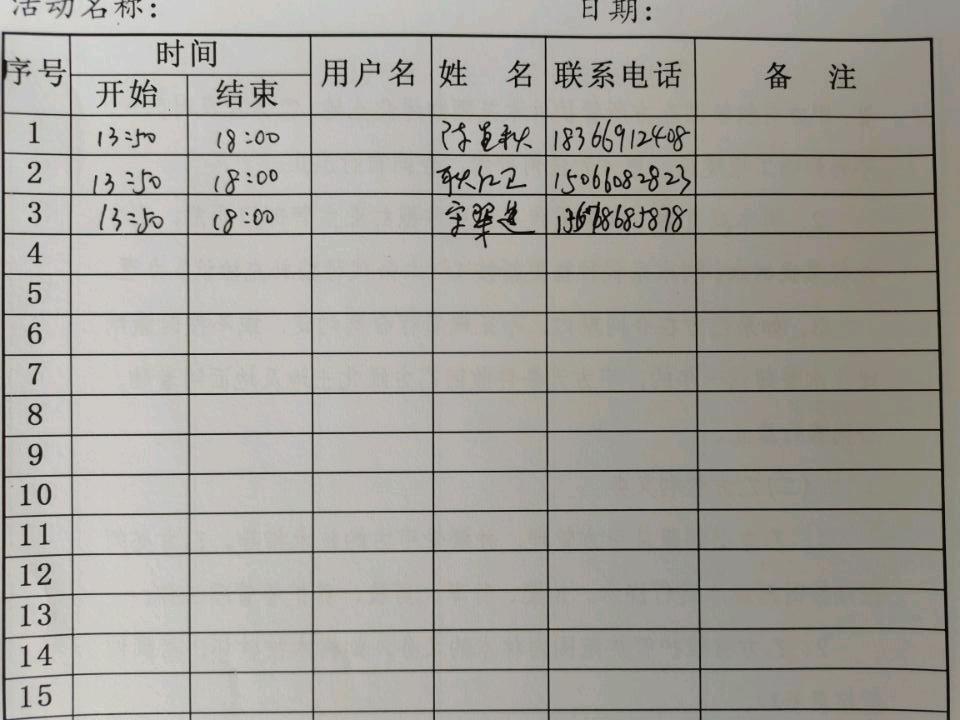 活动名称: 日期:
序号 时间 用户名 姓 名 联系电话 备 注
开始 结束
1 13:50 18:00 18366912408
2 13:50 18:00 耿红卫 15066082823
3 13:50 18:00
4
5
6
7
8
9
10
11
12
13
14
15